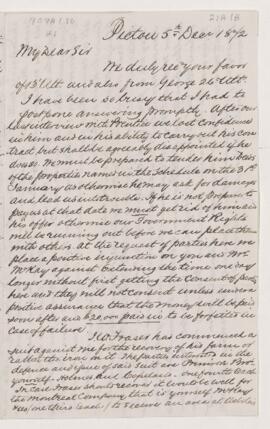 Pictou 5th Decr 1872
My Dear Sir
We duly rec your favor
of 13 Ult and also from George 26 Ult.
I have been so busy that I had to
postpone answering promptly. After our
last interview with we lost confidence
in him and in his ability to carry out his con-
tract but shall be agreeably disappointed if he
does. We must be prepared to tender him Deeds
of the properties named in the Schedule on the 31st
January as otherwise he may ask for damages
and lead us into trouble. If he is not prepared to
pay us at that date we must get rid of him and
his offer otherwise our Government Rights
will be running out before we can place them
with others. At the request of parties here we
place a positive injunction on you and Mr.
McKay against extending the time one day
longer without first getting the consent of parties
here and they will not consent unless under
positive assurance that the money will be paid
soon after and $20,000 paid in to be forfeited in
case of failure.
J.W. Fraser has commenced a
suit against me for the recovery of his farm or
rather the iron in it. The parties interested in the
defence and of said suit are
yourself, Holmes and Copeland one fourth each
In case Fraser should recover it would be well for
the Montreal Company that is yourself McKay
to secure an area at Webster